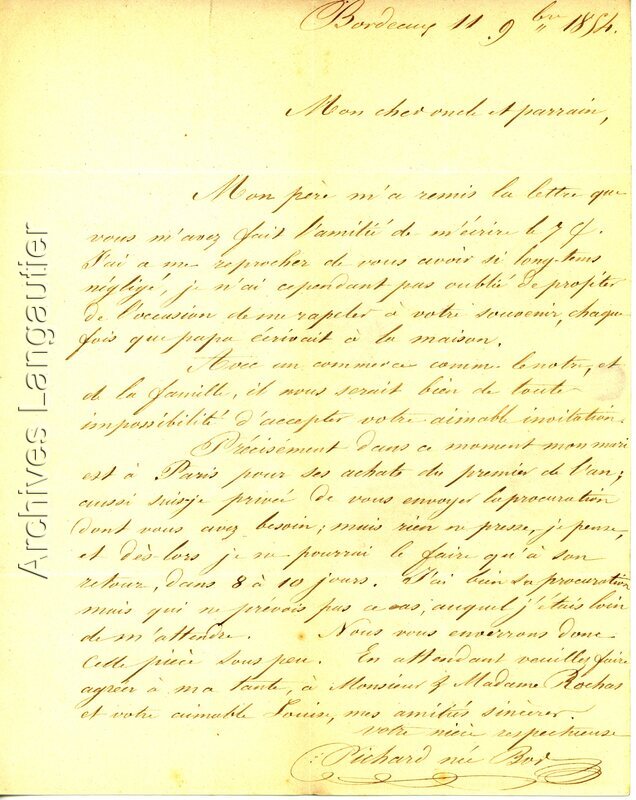 Bordeaux 11 9bre 1854.
Mon cher oncle et parrain,
Mon père m'a remis la lettre que
vous m'avez fait l'amitié de m'écrire le 7 Ct.
J'ai a me reprocher de vous avoir si longtems
négligé, je n'ai cependant pas oublié de profiter
de l'occasion de me rapeler à votre souvenir, chaque
fois que papa écrivait à la maison.
Avec un commerce comme le notre, et
de la famille, il nous serait bien de toute
impossibilité d'accepter votre aimable invitation.
Précisément dans ce moment mon mari
est à Paris pour ses achats du premier de l'an;
aussi suis-je privée de vous envoyer la procuration
dont vous avez besoin; mais rien ne presse, je pense,
et dès-lors je ne pourrai le faire qu'à son
retour, dans 8 à 10 jours. J'ai bien sa procuration
mais qui ne prévois pas ce cas, auquel j'étais loin
de m'attendre. Nous vous enverrons donc
cette pièce sous peu. En attendant veuillez faire
agréer à ma tante, à Monsieur & Madame Rochas
et votre aimable Louise, mes amitiés sincères.
votre nièce respectueuse
Pichard née Bor
Archives Langautier